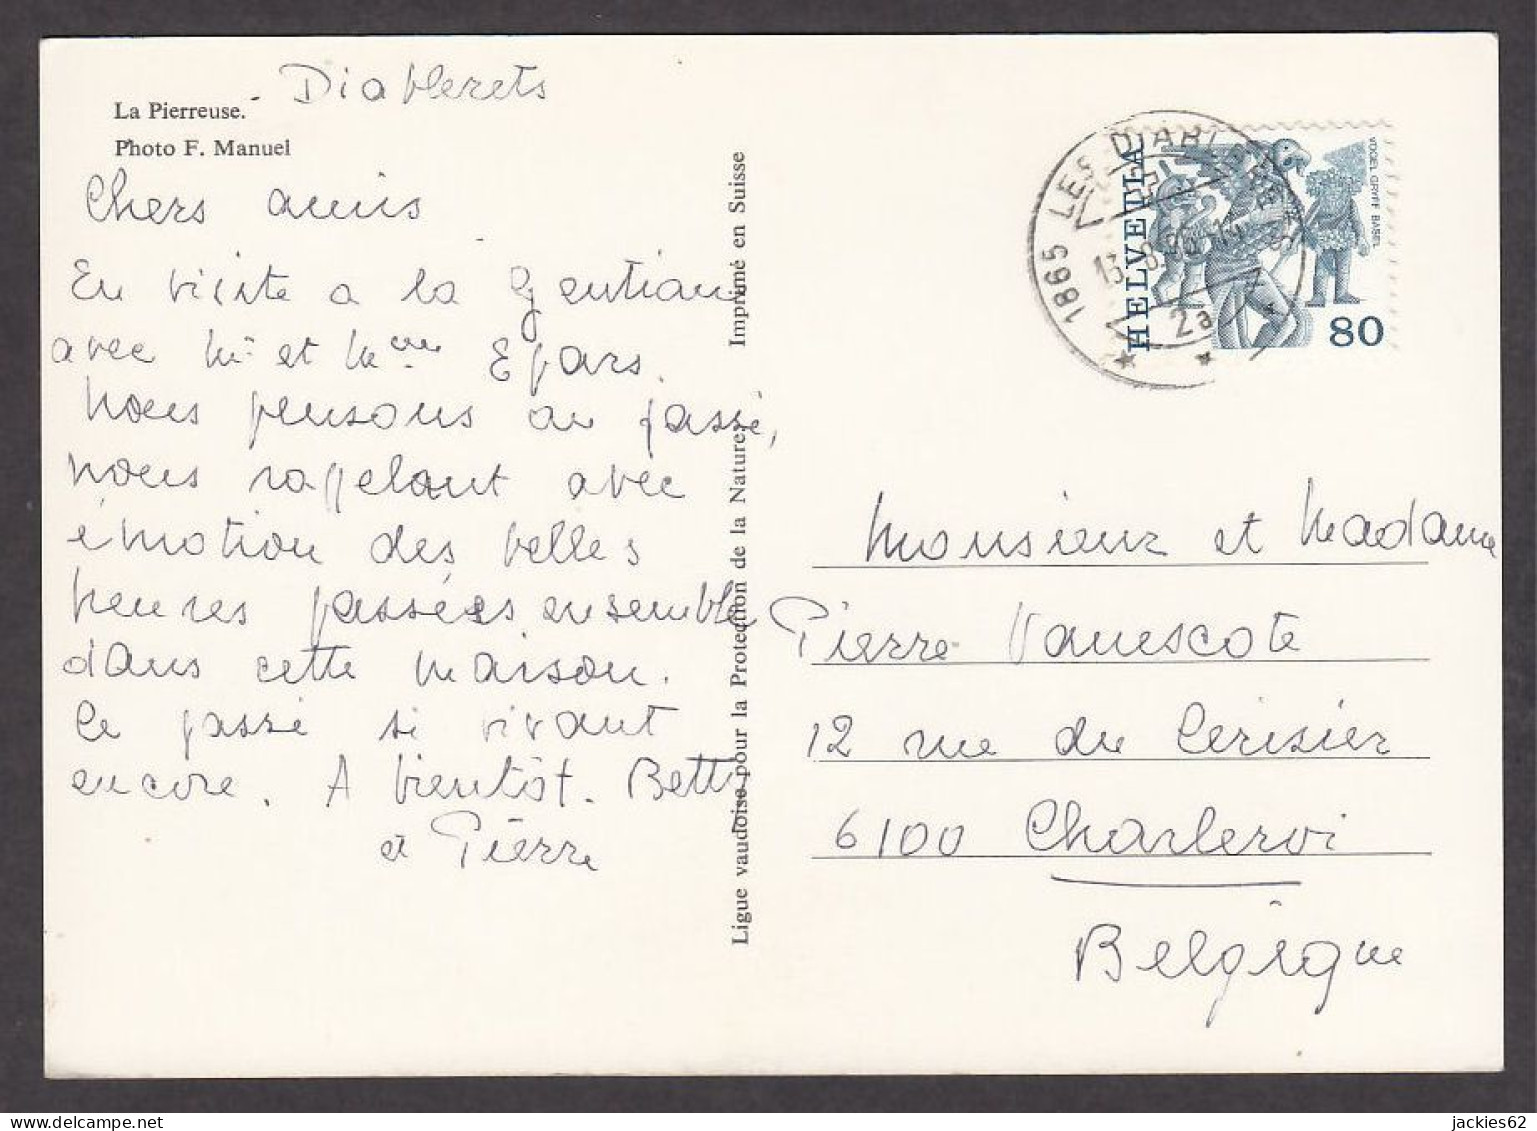 La Pierreuse. - Diablerets
Photo F. Manuel
Chers amis
En visite a la Gentiane
avec Mr et Mme Epars.
Nous pensons au passé,
nous rappelant avec
émotion des belles
heures passées ensemble
dans cette maison.
Ce passé si vivant
encore. A bientôt. Betty
et Pierre
Ligue vaudoise pour la Protection de la Nature. Imprimé en Suisse
1865 LES DIABLERETS
2a
HELVETIA
VOGEL GRYFF BASEL
80
Monsieur et Madame
Pierre Vanescote
12 rue du Cerisier
6100 Charleroi
Belgique
jackies62